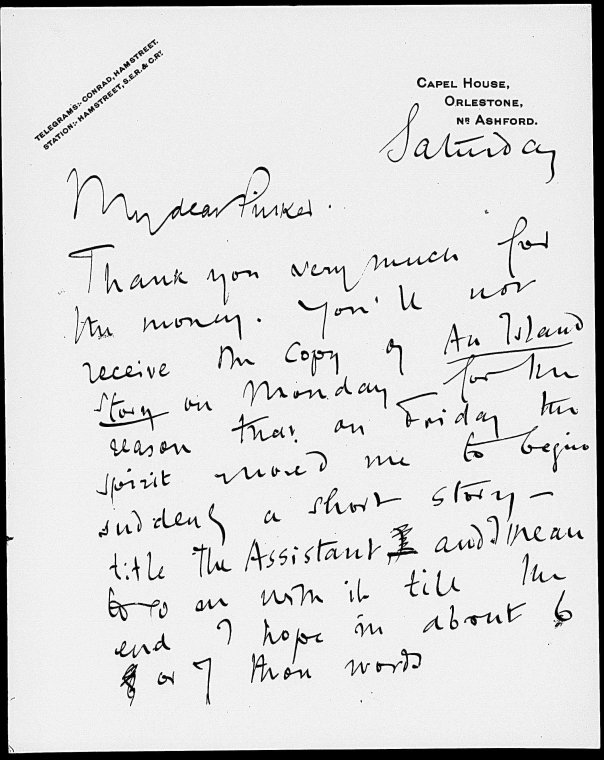 TELEGRAMS:- CONRAD, HAMSTREET.
STATION:- HAMSTREET, S.E.R. & C.RY.
CAPEL HOUSE,
ORLESTONE,
NR ASHFORD.
Saturday
My dear Pinker.
Thank you very much for
the money. You'll not
receive the copy of An Island
Story on Monday for the
reason that on Friday the
spirit moved me to begin
suddenly a short story —
title The Assistant and I mean
to go on with it till the
end I hope in about 6
or 7 thou words